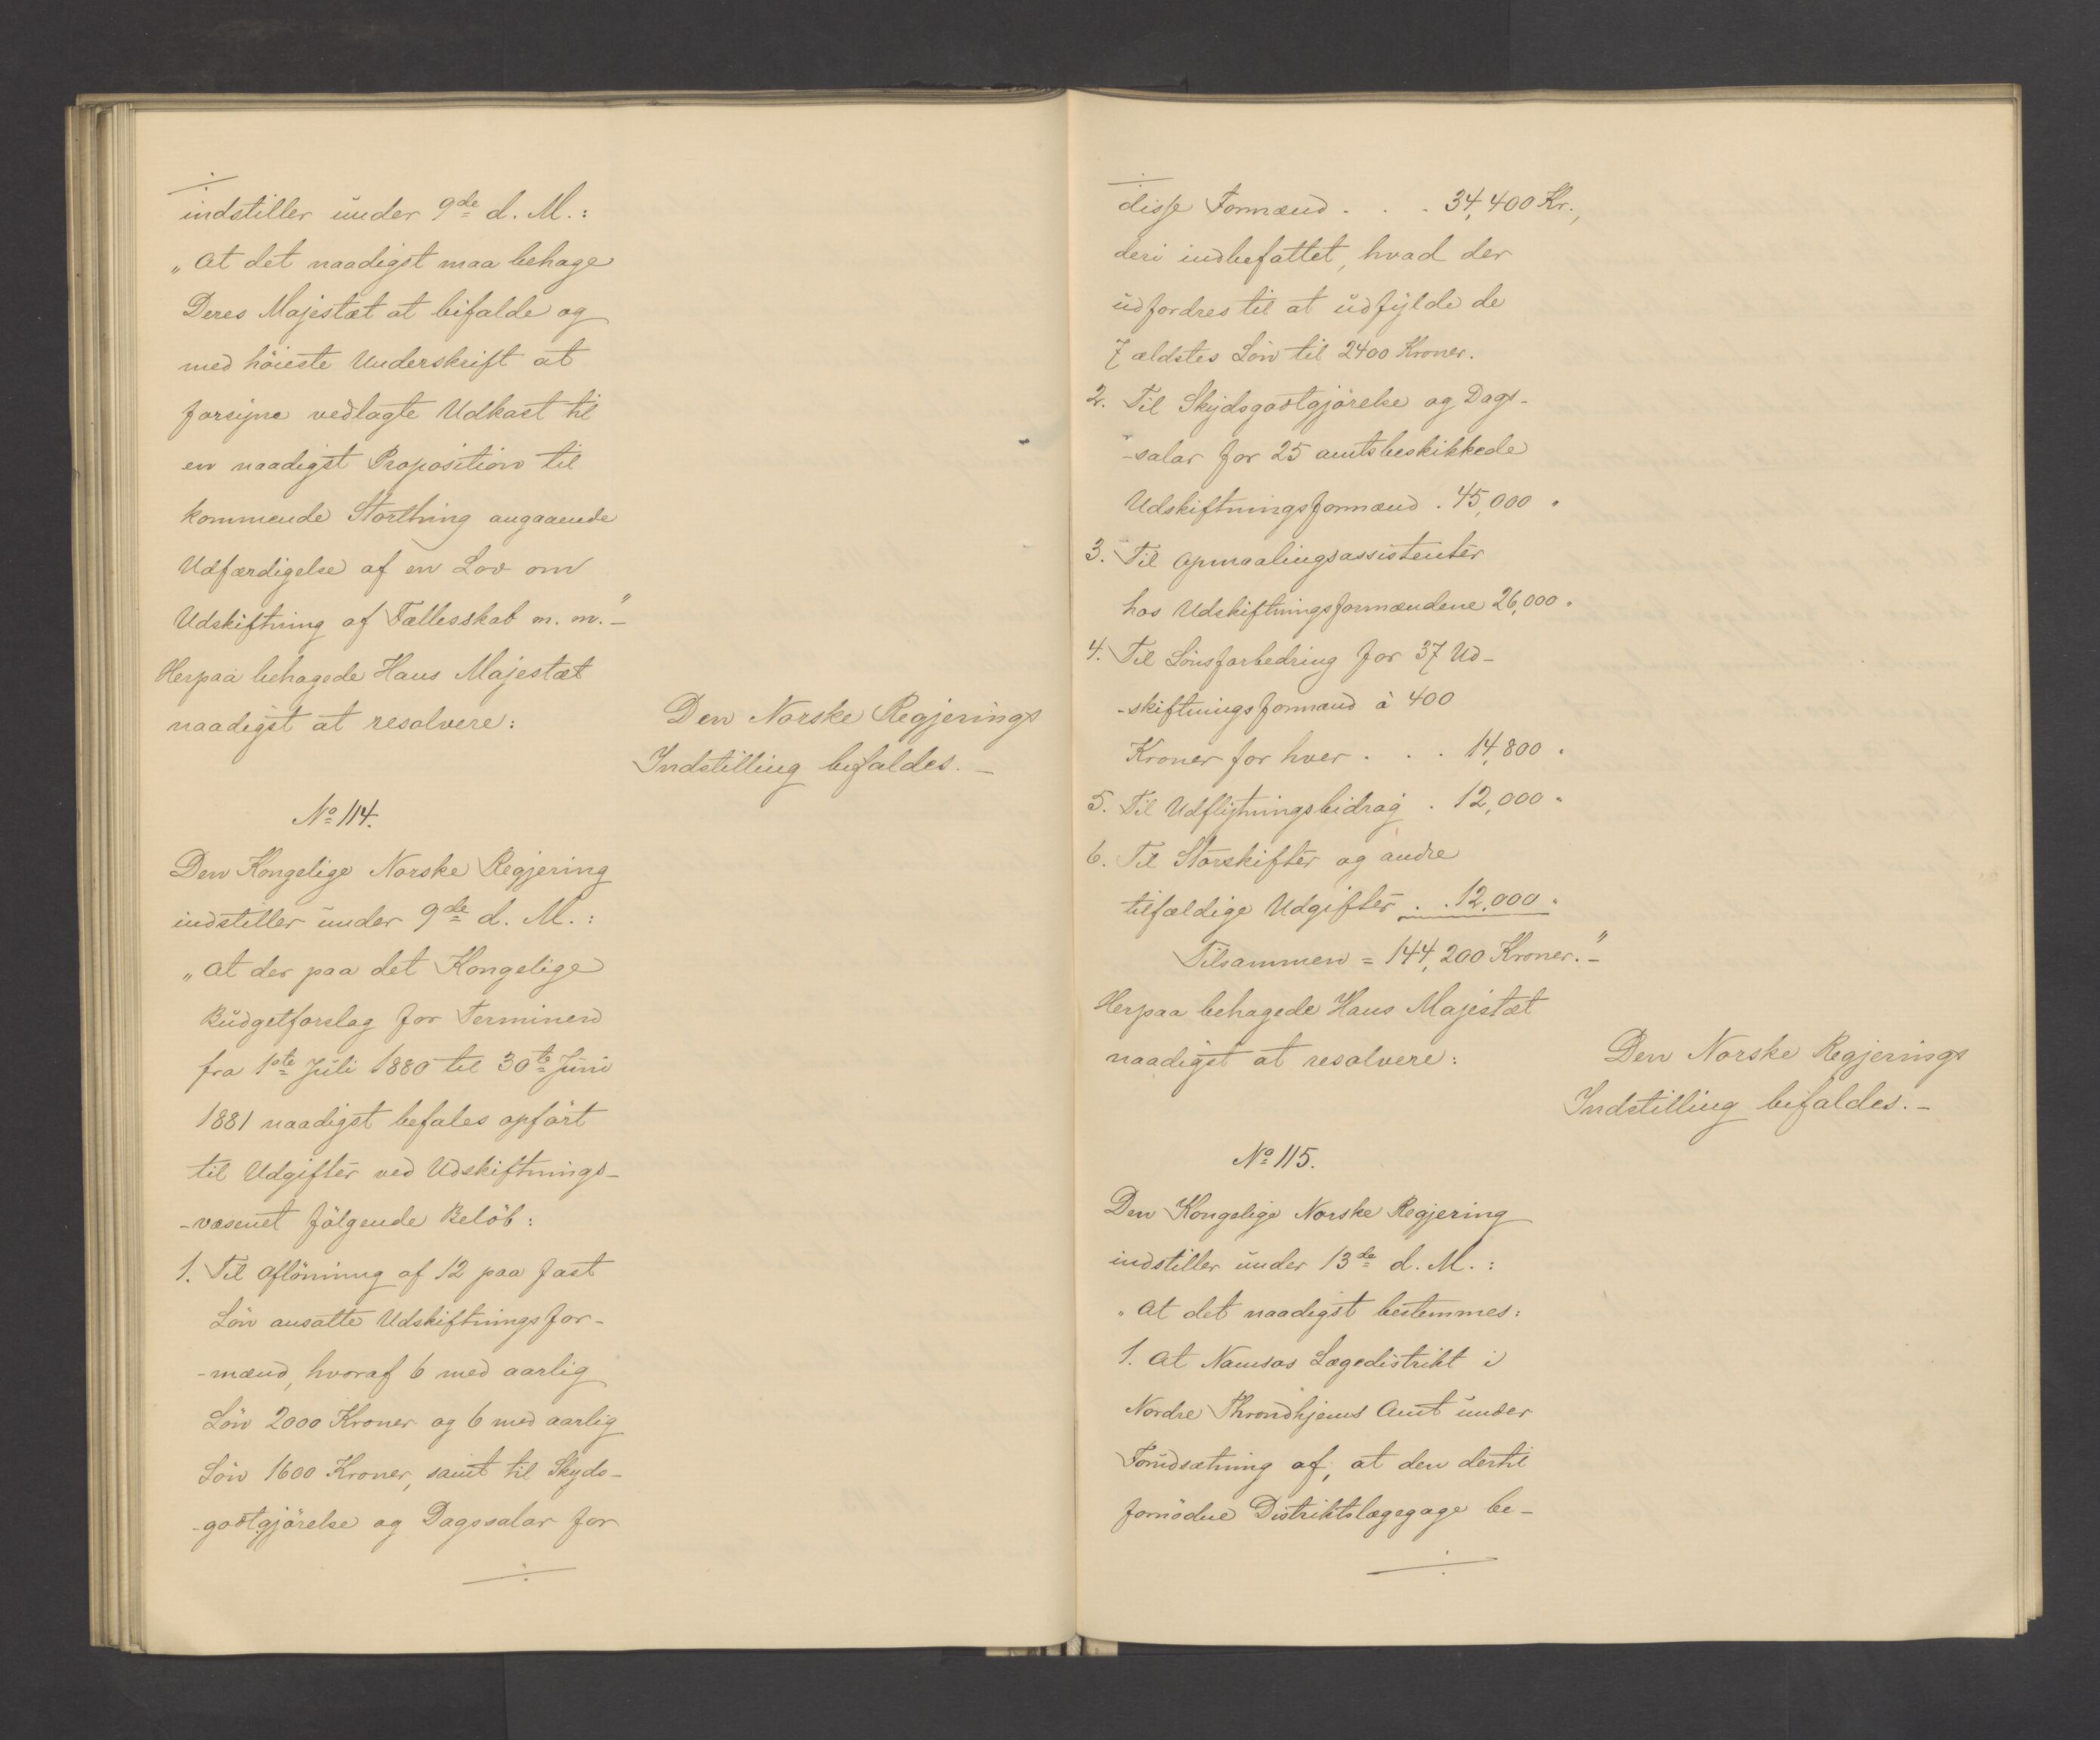 indstiller under 9de d. M.:
„At det naadigst maa behage
Deres Majestæt at bifalde og
med höieste Underskrift at
forsyne vedlagte Udkast til
en naadigst Proposition til
kommende Storthing angaaende
Udfærdigelse af en Lov om
Udskiftning af Fællesskab m. m."–
Herpaa behagede Hans Majestæt
naadigst at resolvere:
Den Norske Regjerings
Indstilling bifaldes.–
No 114.
Den Kongelige Norske Regjering
indstiller under 9de d. M.:
„At der paa det Kongelige
Budgetforslag for Terminen
fra 1ste Juli 1880 til 30te Juni
1881 naadigst befales opfört
til Udgifter ved Udskiftnings-
-væsenet fölgende Belöb:
1. Til Aflönning af 12 paa fast
Lön ansatte Udskiftningsfor-
-mænd, hvoraf 6 med aarlig
Lön 2000 Kroner og 6 med aarlig
Lön 1600 Kroner, samt til Skyds-
-godtgjörelse og Dagssalar for
disse Formænd . . . 34,400 Kr.,
deri indbefattet, hvad der
udfordres til at udfylde de
7 ældstes Lön til 2400 Kroner.
2. Til Skydsgodtgjörelse og Dags-
-salar for 25 amtsbeskikkede
Udskiftningsformænd . 45,000 "
3. Til Opmaalingsassistenter
hos Udskiftningsformændene 26,000 "
4. Til Lönsforbedring for 37 Ud-
-skiftningsformænd à 400
Kroner for hver . . . 14,800 "
5. Til Udflytningsbidrag . 12,000 "
6. Til Storskifter og andre
tilfældige Udgifter . . 12,000 "
Tilsammen = 144,200 Kroner."–
Herpaa behagede Hans Majestæt
naadigst at resolvere:
Den Norske Regjerings
Indstilling bifaldes.–
No 115.
Den Kongelige Norske Regjering
indstiller under 13de d. M.:
„At det naadigst bestemmes:
1. At Namsos Lægedistrikt i
Nordre Throndhjems Amt under
Forudsætning af, at den dertil
fornödne Distriktslægegage be-